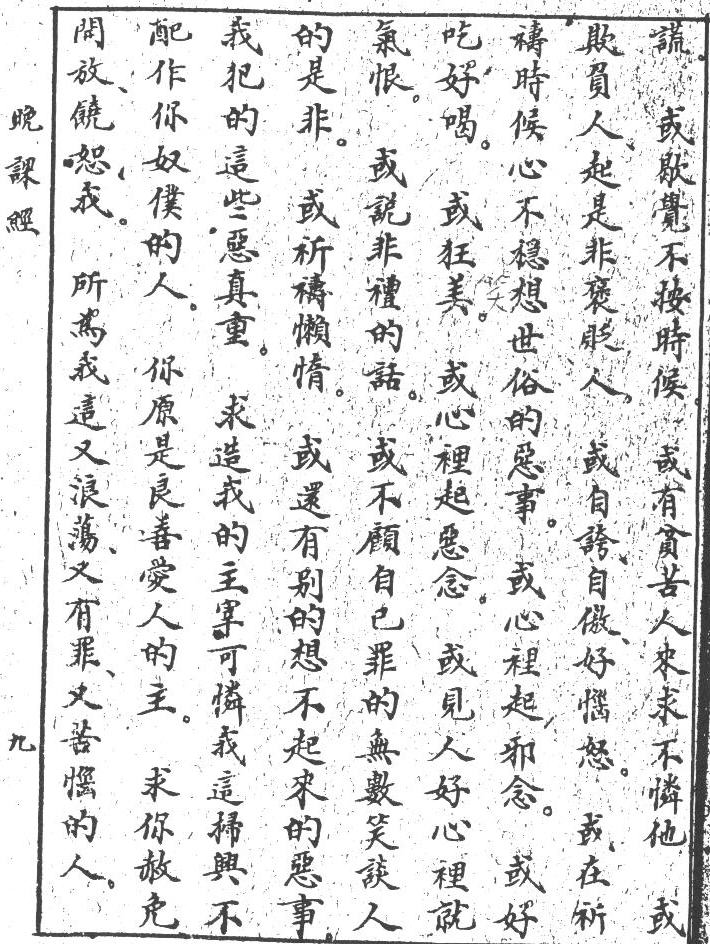 謊。或歇覺不按時候。或有貧苦人來求不憐他 或
欺負人、起是非褒貶人。或自誇、自傲、好惱怒。或在祈
禱時候心不穩想世俗的惡事。或心裡起邪念。或好
吃好喝。或狂美。或心裡起惡念。或見人好心裡就
氣恨。或說非禮的話。或不顧自己罪的無數笑談人
的是非。或祈禱懶惰。或還有別的想不起來的惡事。
我犯的這些惡真重。求造我的主宰可憐我這掃興不
配作你奴僕的人。你原是良善愛人的主。求你赦免
開放、饒恕我。所為我這又浪蕩、又有罪、又苦惱的人。
晚課經
九